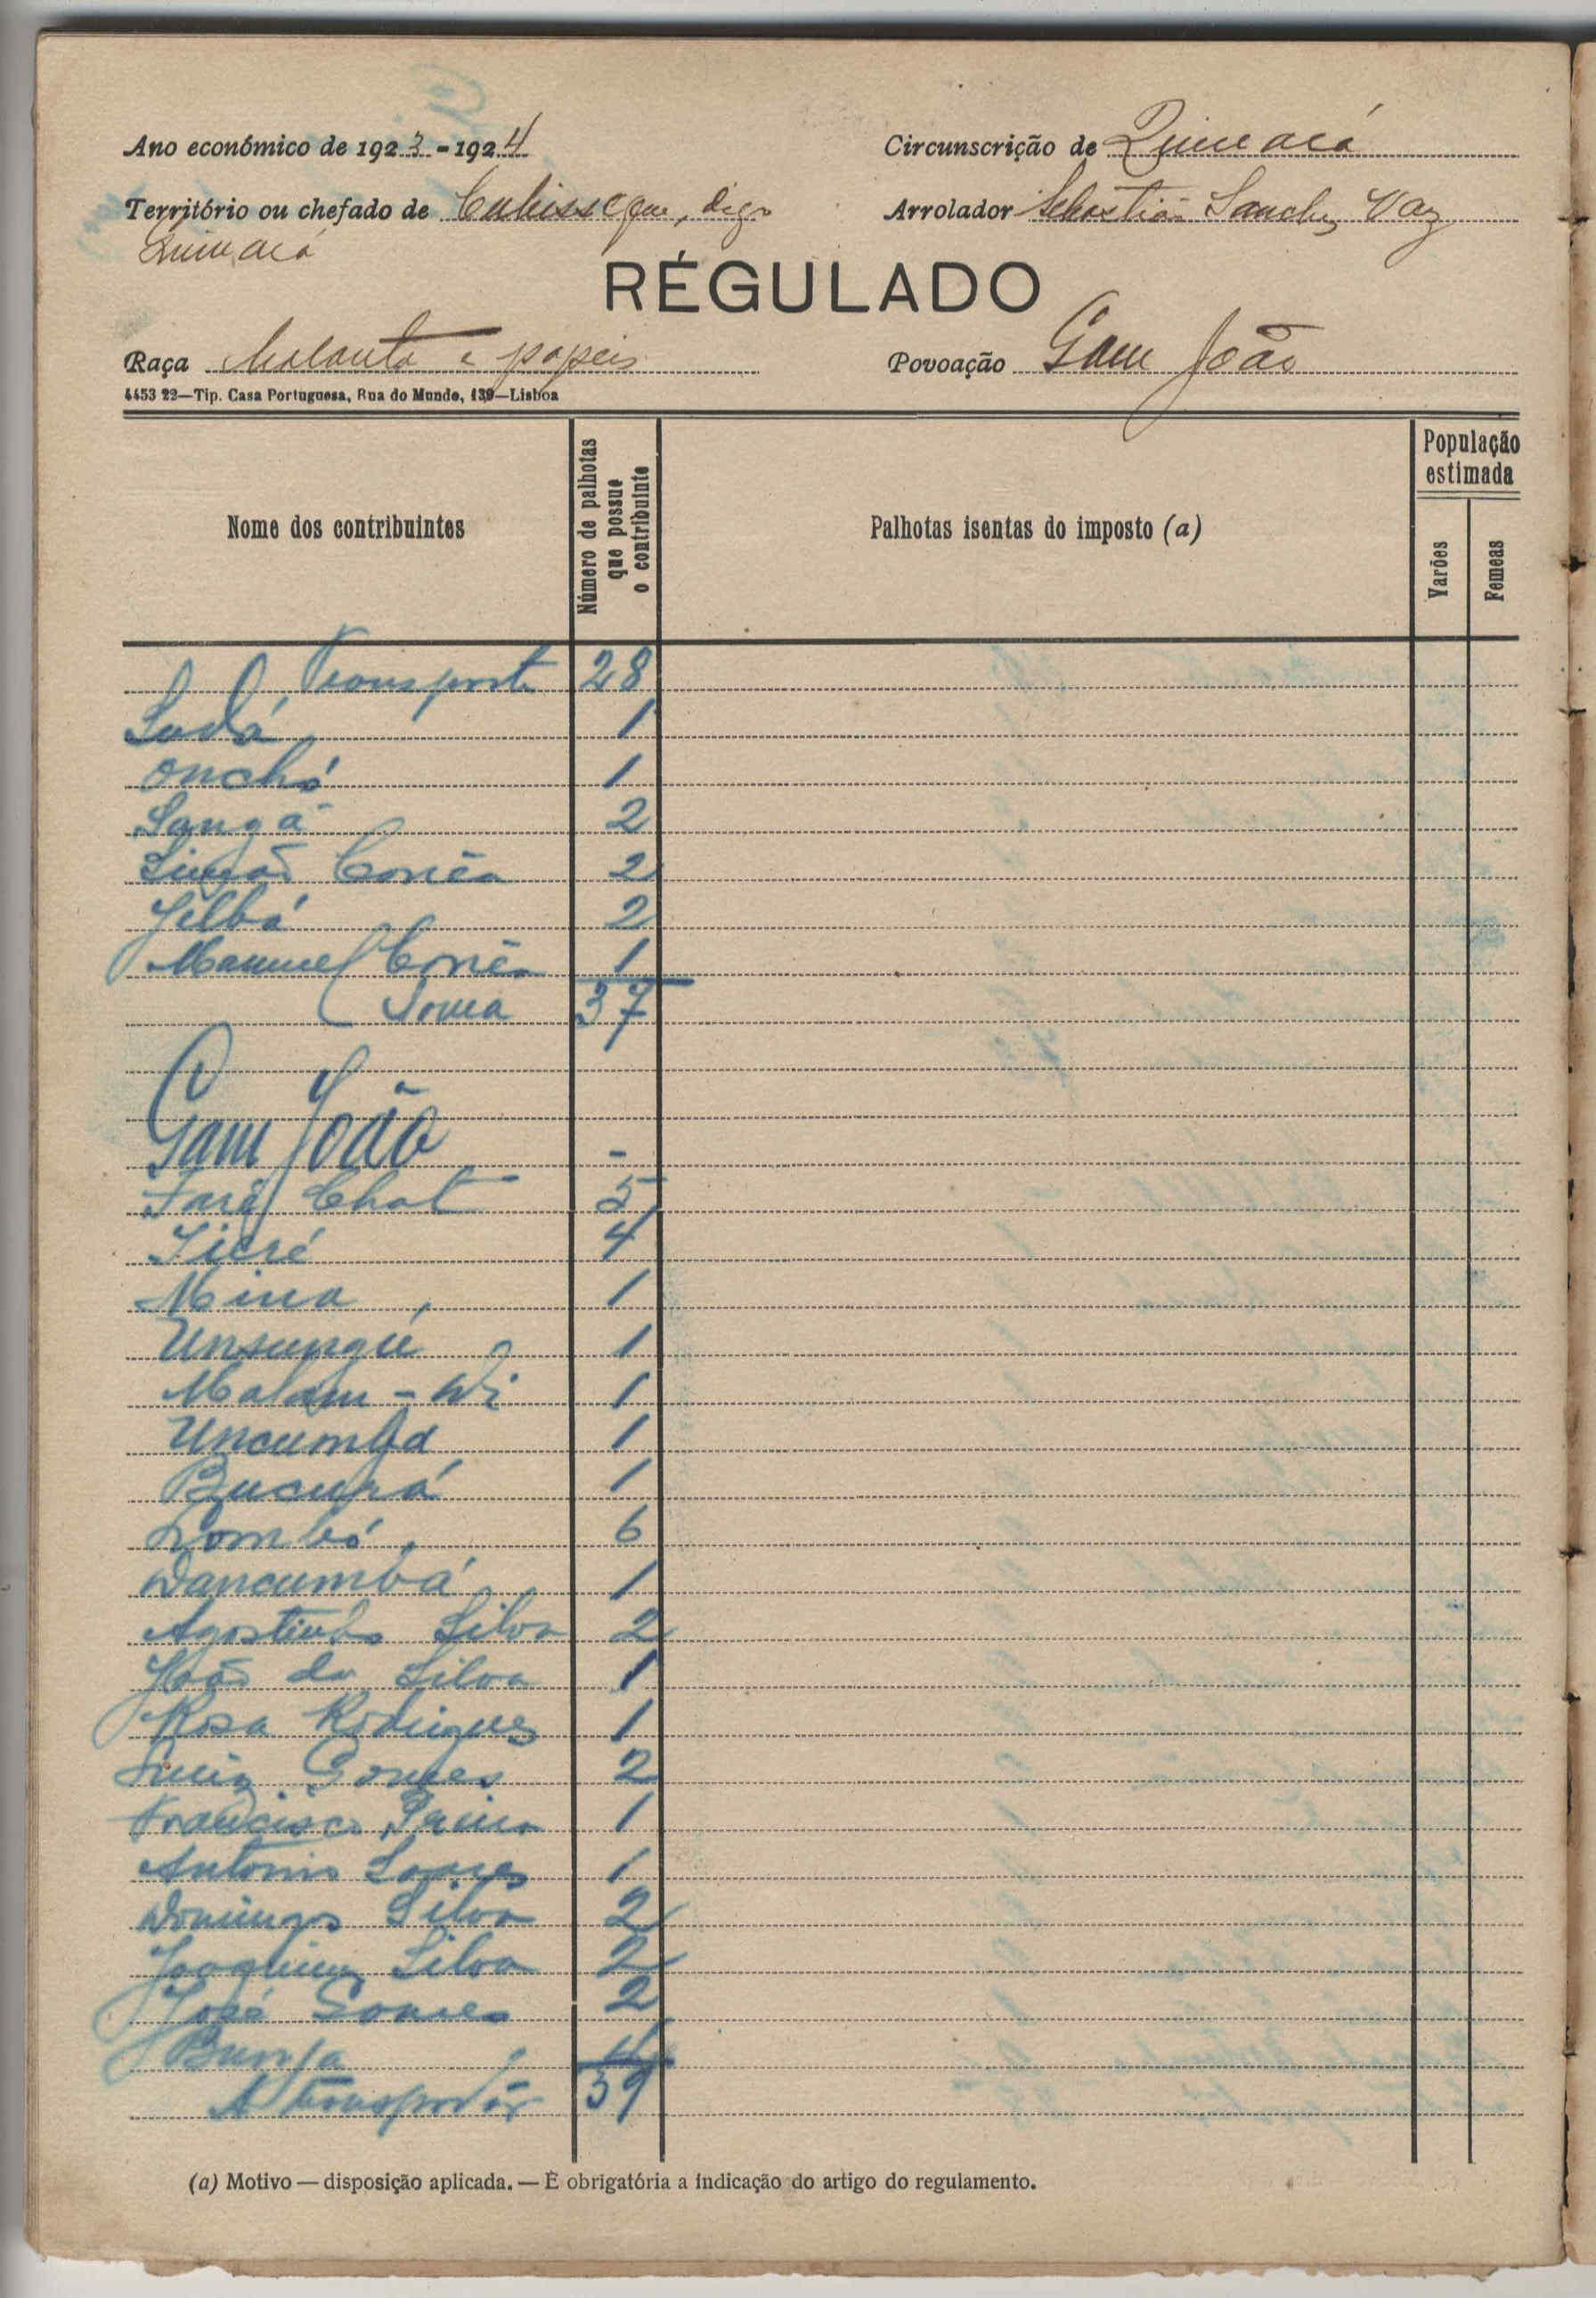 Ano económico de 1923-1924
Circunscrição de Quinará
Território ou chefado de Cubisseque, digo
Quinará
Arrolador Sebastião Sanches Vaz
RÉGULADO
Raça Balanta e papeis
Povoação Gam João
4453 22—Tip. Casa Portuguesa, Rua do Mundo, 139—Lisboa
Nome dos contribuintes
Número de palhotas que possue o contribuinte
Palhotas isentas do imposto (a)
População estimada
Varões
Femeas
Transporte 28
1
Onchó 1
Sangá 2
Simão Corrêa 2
2
Manuel Corrêa 1
Soma 37
Gam João -
Chat 5
4
Mina 1
Unsungúe 1
Malam - 1
Uncumba 1
Bucurá 1
Lombó 6
Dancumbá 1
Agostinho Silva 2
João da Silva 1
Rosa Rodrigues 1
Luiz Gomes 2
Francisco 1
Antonio Soares 1
Domingos Silva 2
Joaquim Silva 2
José Gomes 2
Bunja
A transportar 39
(a) Motivo — disposição aplicada. — É obrigatória a indicação do artigo do regulamento.